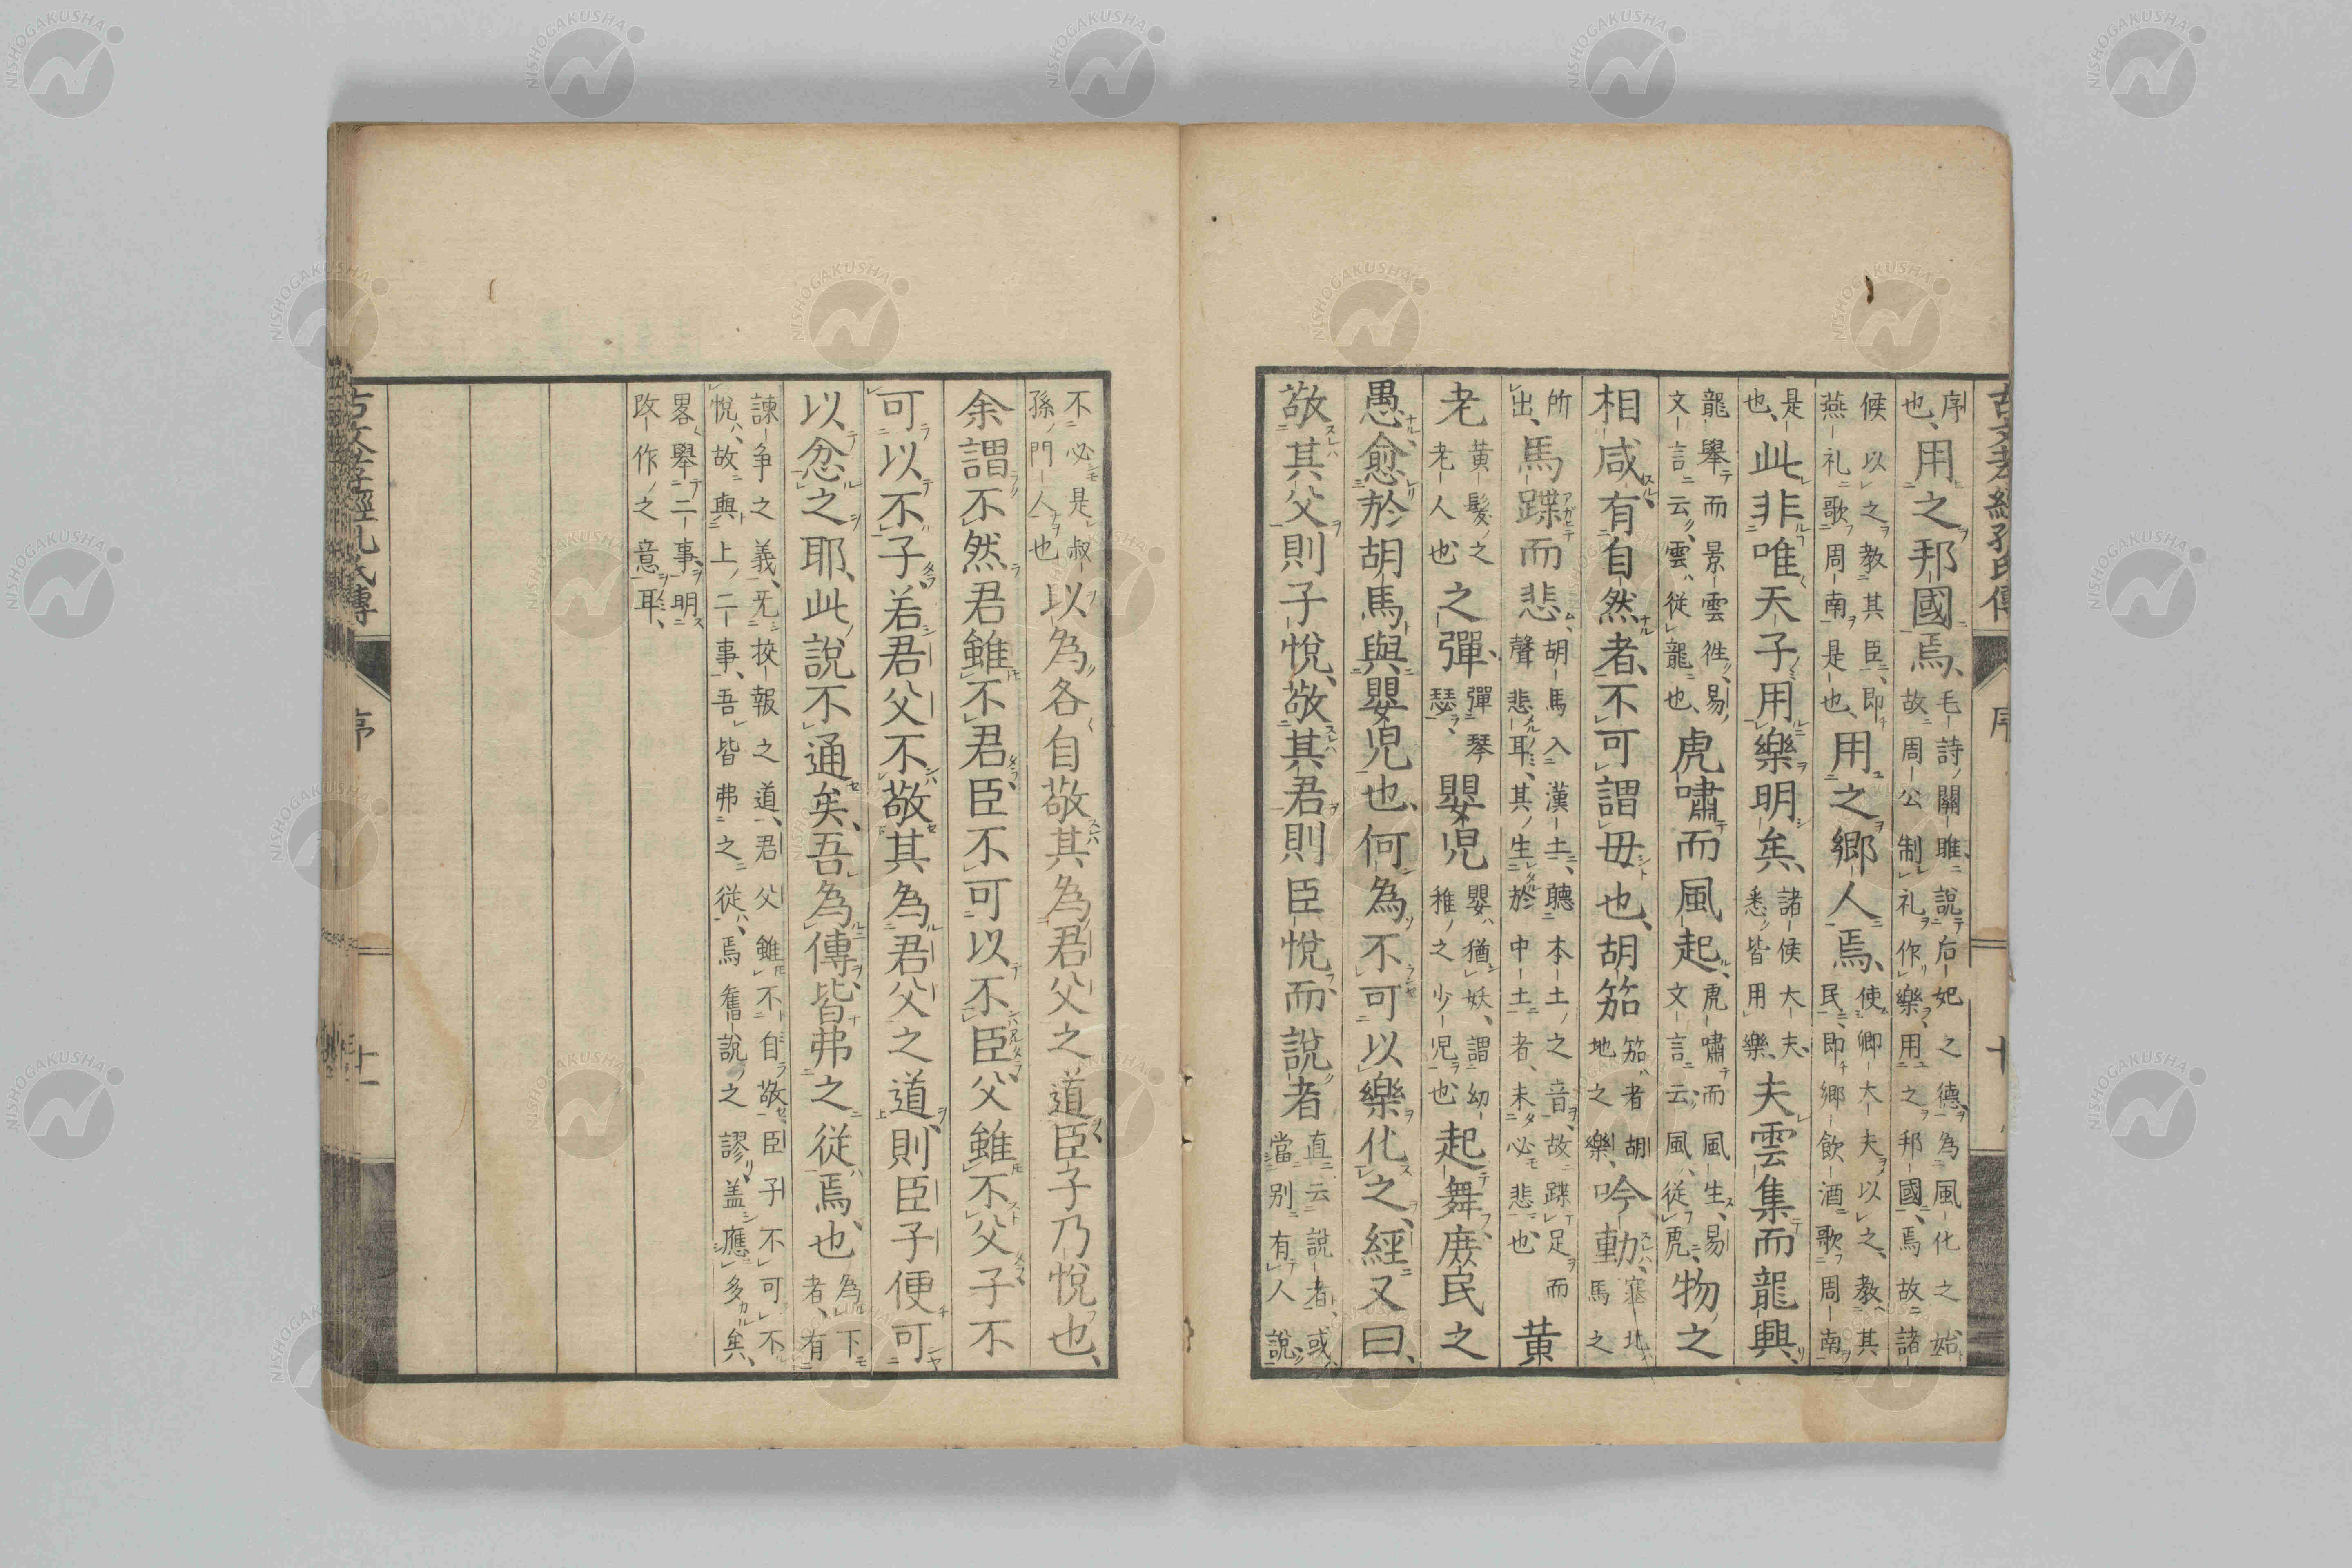 古文孝經孔氏傳 序
序也、用之邦國焉、毛詩關雎說后妃之德為風化之始故周公制礼作樂用之邦國焉故諸
候以之教其臣即燕礼歌周南是也、用之鄉人焉、使卿大夫以之教其民即鄉飲酒歌周南
是也、此非唯天子用樂明矣、諸侯大夫悉皆用樂夫雲集而龍興、
龍舉而景雲徃易文言云雲從龍也虎嘯而風起、虎嘯而風生易文言云風從虎物之
相感有自然者、不可謂毋也、胡笳笳者胡地之樂吟動塞北馬之
所出、馬蹀而悲、胡馬入漢土聽本土之音故蹀足而聲悲耳其生於中土者未必悲也黃
老黃髮之老人也之彈、彈琴瑟嬰児嬰猶妖謂幼稚之少児也起舞庶民之
愚、愈於胡馬與嬰児也、何為不可以樂化之、經又曰、
敬其父則子悅、敬其君則臣悅而說者直云說者或當別有人說
不必是叔孫門人也以為各自敬其為君父之道臣子乃悅也、
余謂不然君雖不君臣不可以不臣父雖不父子不
可以不子若君父不敬其為君父之道、則臣子便可
以忿之耶、此說不通矣、吾為傳、皆弗之從焉、也為下者、有
諫争之義、旡挍報之道、君父雖不自敬臣子不可不悅、故與上二事、吾皆弗之從、焉舊說之謬盖應多矣、
畧舉二事、明攺作之意耳、
古文孝經孔氏傳 序